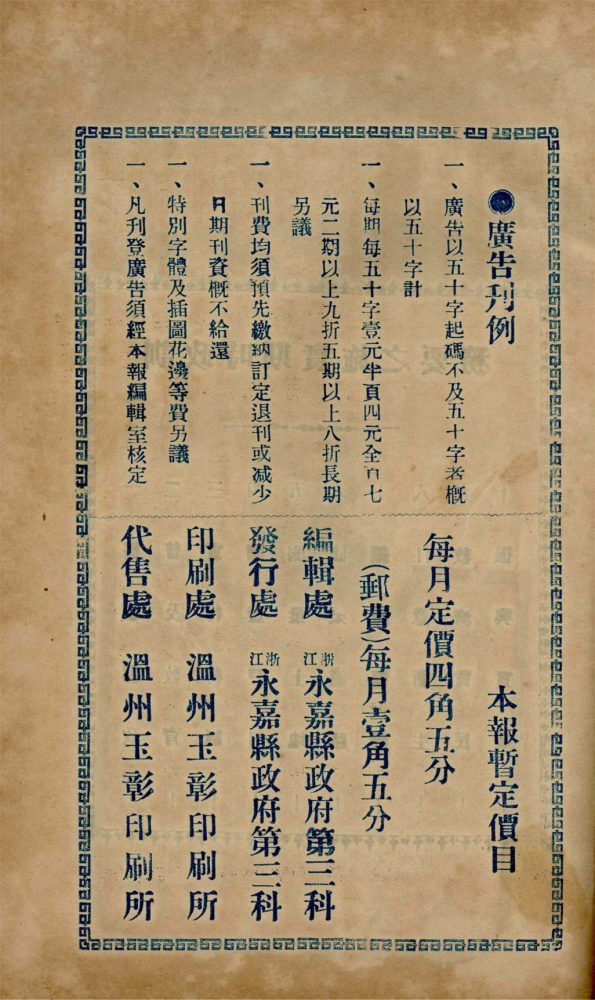 ●廣告刋例
一、廣告以五十字起碼不及五十字者概
以五十字計
一、每期每五十字壹元半頁四元全頁七
元二期以上九折五期以上八折長期
另議
一、刊費均須預先繳納訂定退刊或减少
日期刊資概不給還
一、特別字體及插圖花邊等費另議
一、凡刊登廣告須經本報編輯室核定
本報暫定價目
每月定價四角五分
(郵費)每月壹角五分
編輯處 浙江永嘉縣政府第三科
發行處 浙江永嘉縣政府第三科
印刷處 溫州玉彰印刷所
代售處 溫州玉彰印刷所